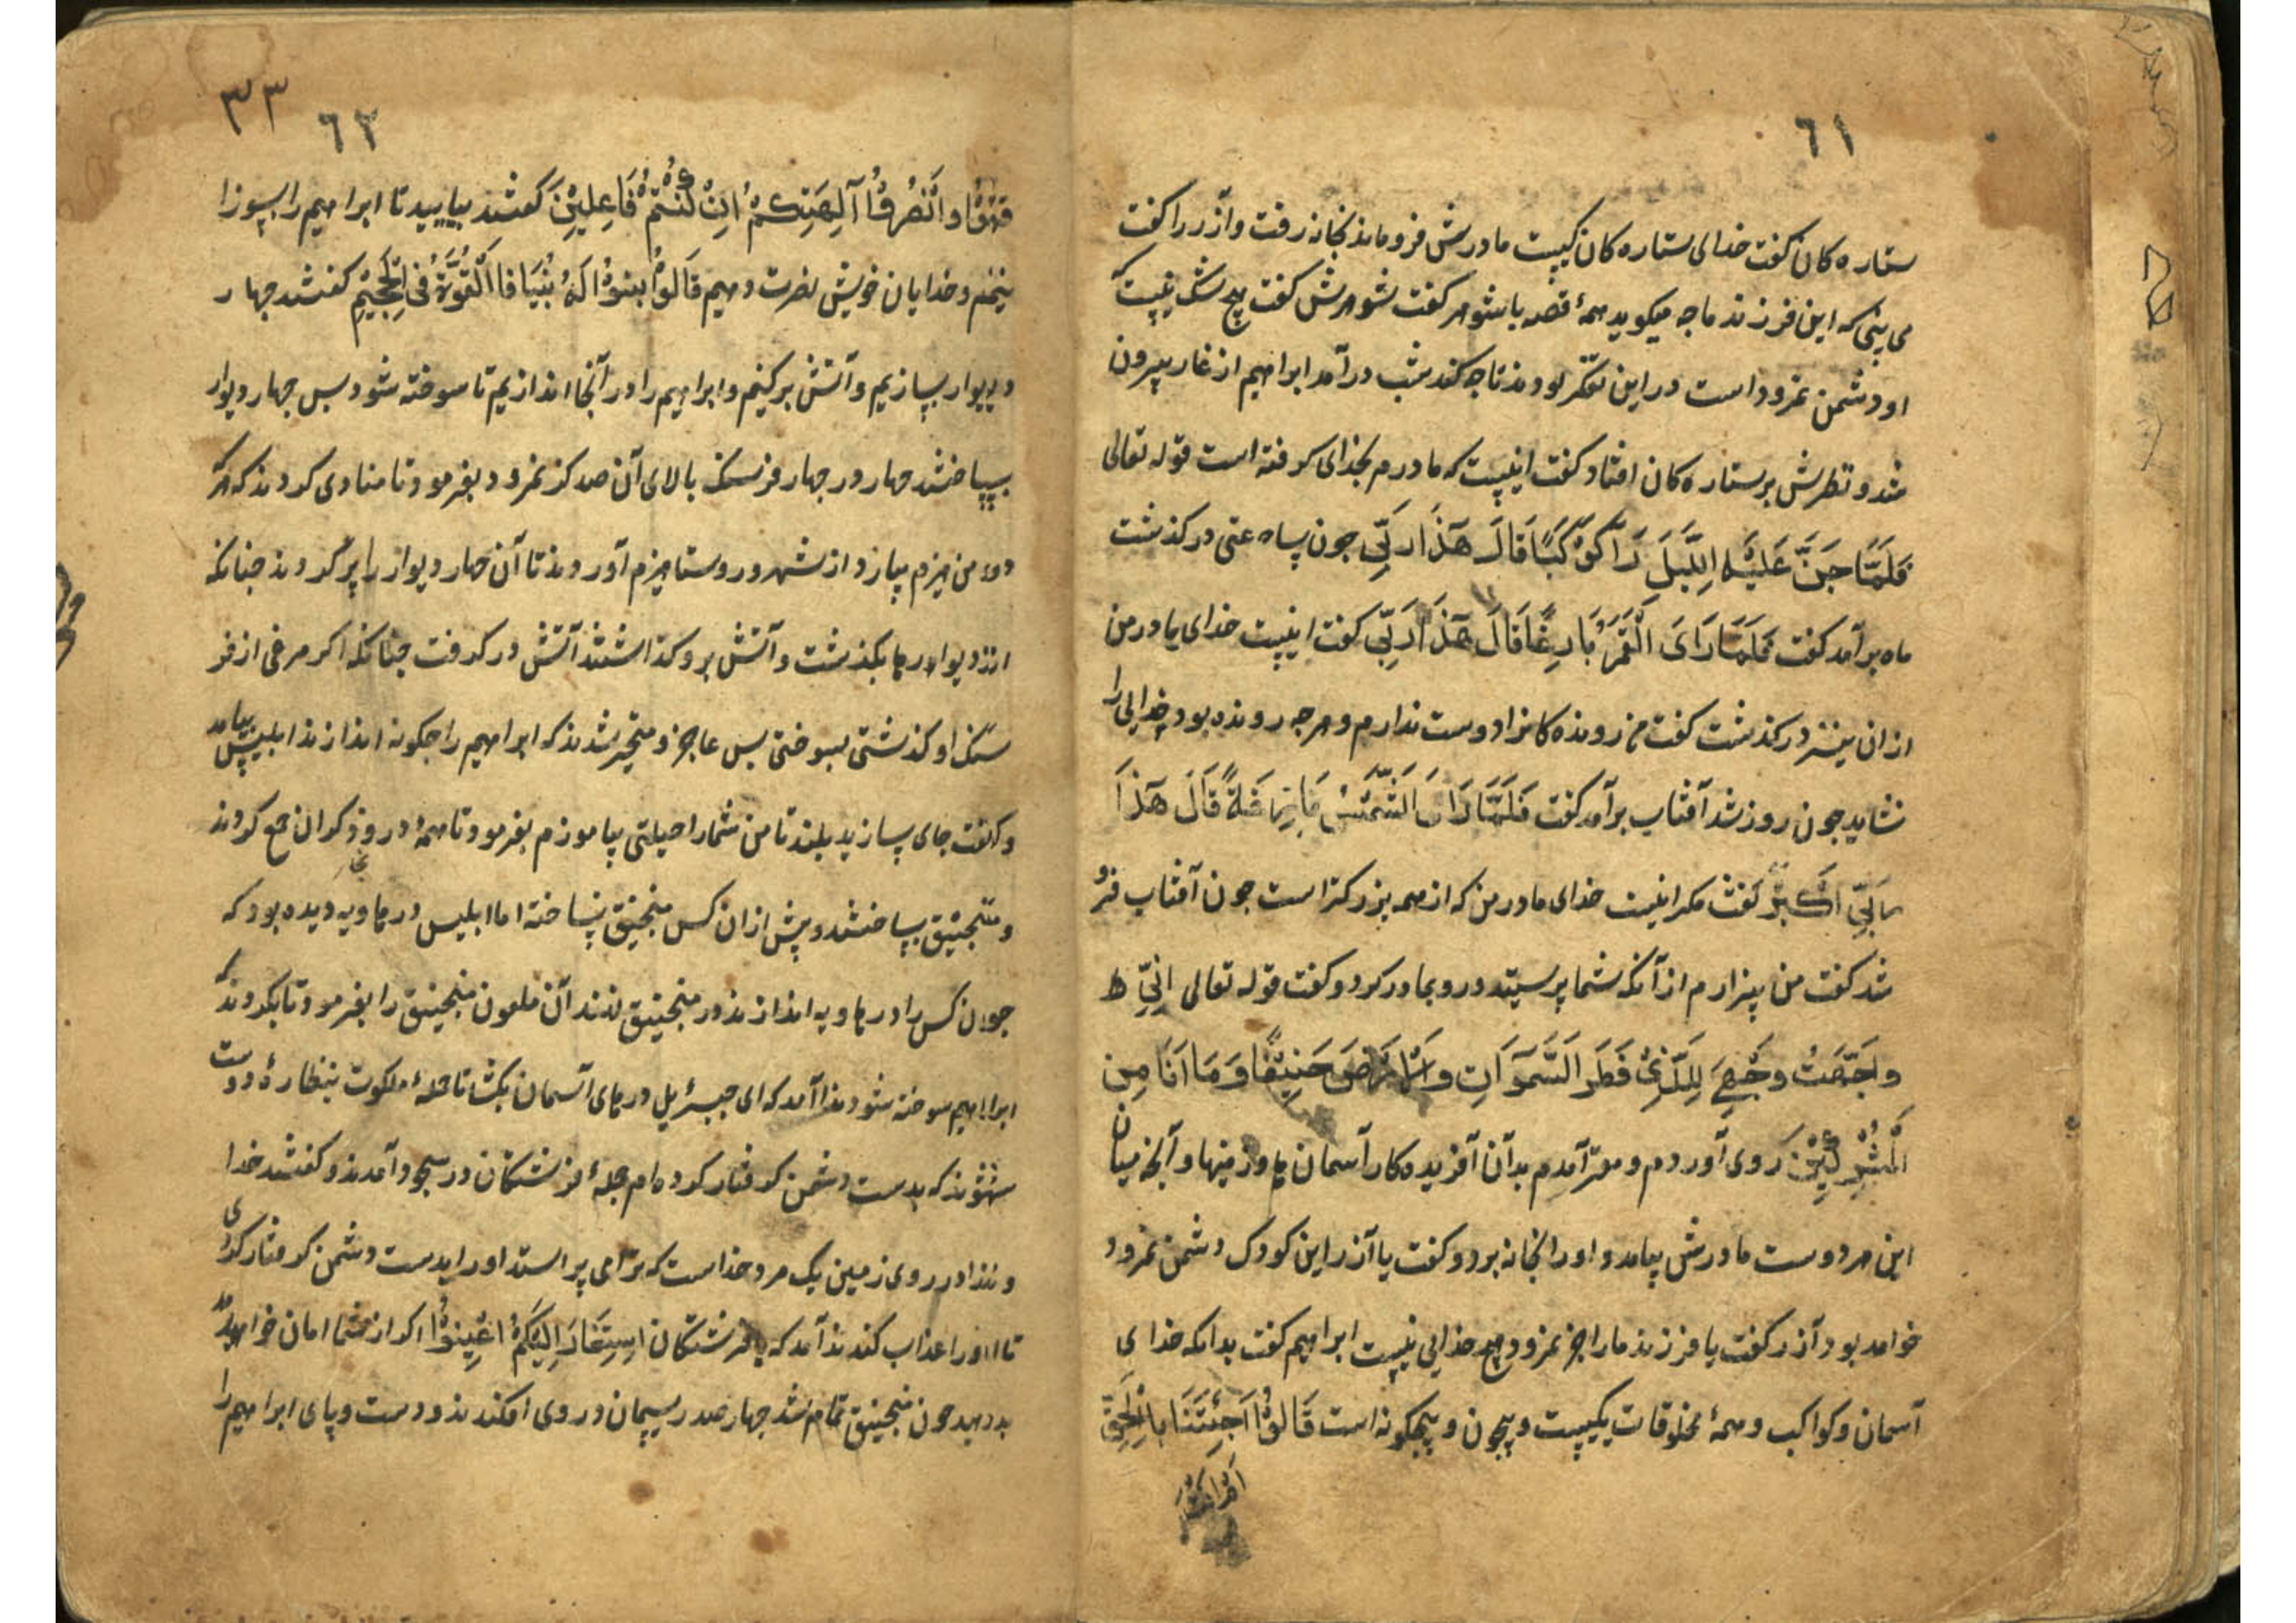 ٦١
ستاره کان کفت خدای ستاره کان کیست مادرش فروماند بخانه رفت وآزر را کفت
می بینی که این فرزند ما چه میکوید همهٔ قصه با شوهر کفت شوهرش کفت هیچ شک نیست که
او دشمن نمرود است در این تفکر بودند تا چه کند شب درآمد ابراهیم از غار بیرون
شد و نظرش بر ستاره کان افتاد کفت اینست که مادرم بخدای کرفته است قوله تعالی
فَلَمَّا جَنَّ عَلَيْهِ اللَّيْلَ رَأَ كَوْكَبًا قَالَ هَذَا رَبِّي جون پاه عتی درکذشت
ماه برآمد کفت فَلَمَّا رَاىَ الْقَمَرَ بَارِغًا قَالَ هَذَا رَبِّي کفت اینست خدای مادر من
از ان نیز درکذشت کفت من رونده کانرا دوست ندارم و هرجه رونده بود خدایی را
نشاید جون روز شد آفتاب برآمد کفت فَلَمَّا رَاَ الشَّمْسَ بَازِغَةً قَالَ هَذَا
رَبِّي اَكْبَرُ کفت مکر اینست خدای مادر من که از همه بزرکتر است جون آفتاب فرو
شد کفت من بیزارم از آنکه شما پرستید و رو بمادر کرد و کفت قوله تعالی اِنِّي
وَجَّهْتُ وَجْهِيَ لِلَّذِي فَطَرَ السَّمَوَاتِ وَالْاَرْضَ حَنِيفًا وَمَا اَنَا مِنَ
الْمُشْرِكِيْنَ روی آوردم و مقر آمدم بدآن آفریده کار آسمان ها و زمینها و آنجه میان
این هر دوست مادرش بیامد و اورا بخانه برد و کفت یا آزر این کودک دشمن نمرود
خواهد بود آزر کفت یا فرزند مارا جز نمرود هیچ خدایی نیست ابراهیم کفت بدانکه خدای
آسمان و کواکب و همهٔ مخلوقات یکیست و بیچون و بیجکونه است قَالُوْا اَجِئْتَنَا بِالْحَقِّ
٣٣
٦٢
وَانْصُرُوْا آلِهَتِكُمْ اِنْ كُنْتُمْ فَاعِلِيْنَ کفتند بیایید تا ابراهیم را بسوزا
نیم و خدایان خویش نصرت دهیم قَالُوْا ابْنُوْا لَهُ بُنْيَانا فَاَلْقُوْهُ فِي الْجَحِيْمِ کفتند جهار
دیوار بسازیم و آتش برکنیم و ابراهیم را در آنجا اندازیم تا سوخته شود بس جهار دیوار
بساختند جهار در جهار فرسنک بالای آن صد کز نمرود بفرمود تا منادی کردند که هر که
ده من هیزم بیارد از شهر و روستا هیزم آوردند تا آن جهار دیوار را پر کردند جنانکه
از دیوارها بکذشت و آتش برو کذاشتند آتش در کرفت جنانکه اکر مرغی از فر
سنک او کذشتی بسوختی بس عاجز و متحیر شدند که ابراهیم را جکونه اندازند ابلیس بیامد
وکفت جای بسازید بلند تا من شمارا حیلتی بیاموزم بفرمود تا همهٔ درودکران جمع کردند
و منجنیق بساختند و پیش از ان کس منجنیق نساخته اما ابلیس در هاویه دیده بود که
جون کس را در هاویه اندازند در منجنیق نهند آن ملعون منجنیق را بفرمود تا بکردند که
ابراهیم سوخته شود ندا آمد که ای جبرئیل درهای آسمان بکشا تا جملهٔ ملکوت بنظارهٔ دوست
شوند که بدست دشمن کرفتار کرده ام جملهٔ فرشتکان در سجود آمدند و کفتند خدا
وندا در روی زمین یک مرد خداست که ترا می پرستد او را بدست دشمن کرفتار کردی
تا او را عذاب کنند ندآ آمد که یا فرشتکان اِسْتِغَارَ اِلَيْكُمْ اَغِيثُوْا اکر از شما امان خواهد
بدهید جون منجنیق تمام شد جهار صد ریسمان در وی افکندند و دست و پای ابراهیم را